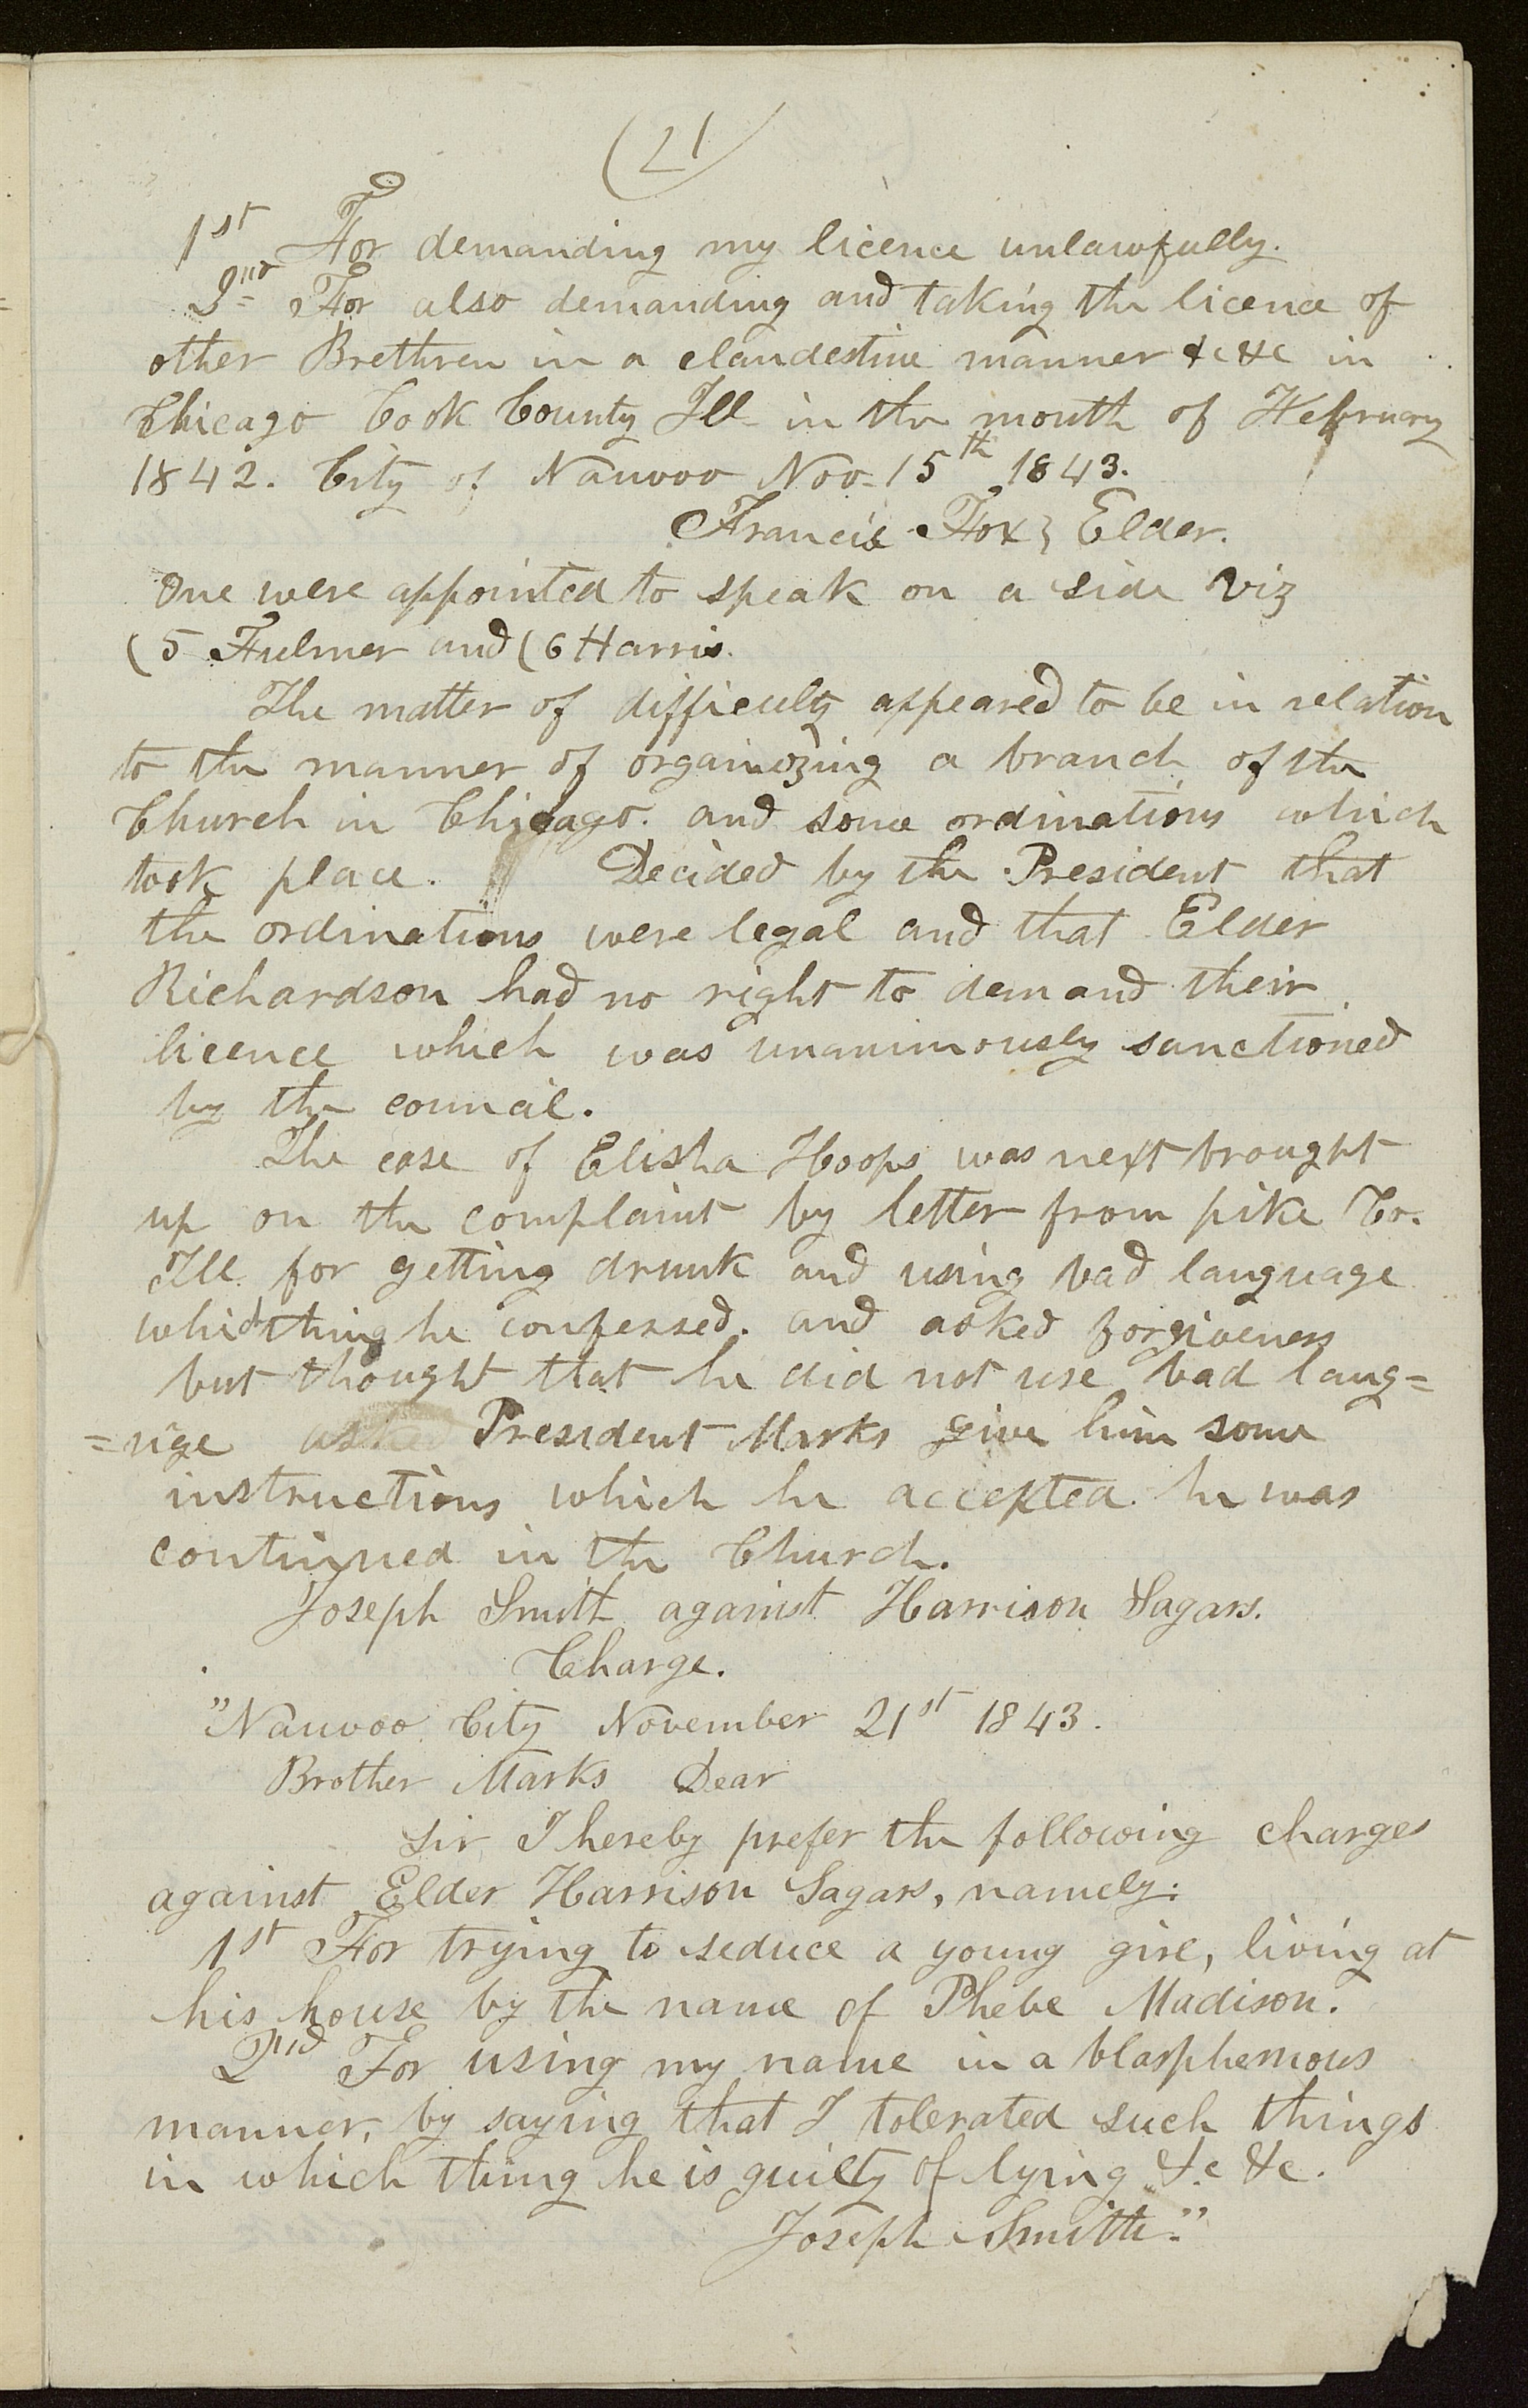 (21)
1st For demanding my licence unlawfully.
2nd For also demanding and taking the licence of
other Brethren in a clandestine manner &c &c in
Chicago Cook County Ill in the month of February
1842. City of Nauvoo Nov. 15th 1843.
Francis Fox } Elder.
One were appointed to speak on a side viz
(5 Fulmer and (6 Harris.
The matter of difficulty appeared to be in relation
to the manner of orgainizing a branch of the
Church in Chicago. and some ordinations which
took place. Decided by the President that
the ordinations were legal and that Elder
Richardson had no right to demand their
licence which was unanimously sanctioned
by the council.
The case of Elisha Hoops was next brought
up on the complaint by letter from pike Co.
Ill. for getting drunk and using bad language
which thing he confessed. and asked forgiveness
but thought that he did not use bad lang=
=uge President Marks give him some
instructions which he accepted. he was
continued in the Church.
Joseph Smith against Harrison Sagars.
Charge.
"Nauvoo City November 21st 1843.
Brother Marks Dear
Sir, I hereby prefer the following charges
against Elder Harrison Sagars, namely:
1st For trying to seduce a young girl, living at
his house by the name of Phebe Madison.
2nd For using my name in a blasphemous
manner, by saying that I tolerated such things
in which thing he is guilty of lying &c &c.
Joseph Smith."